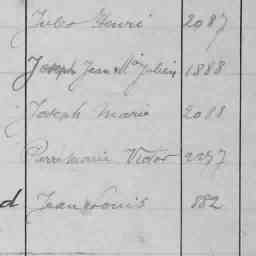 Jules Henri 2087
Joseph Jean Mie Julien 1888
Joseph Marie 2088
Pierre Marie Victor 2257
d Jean Louis 882